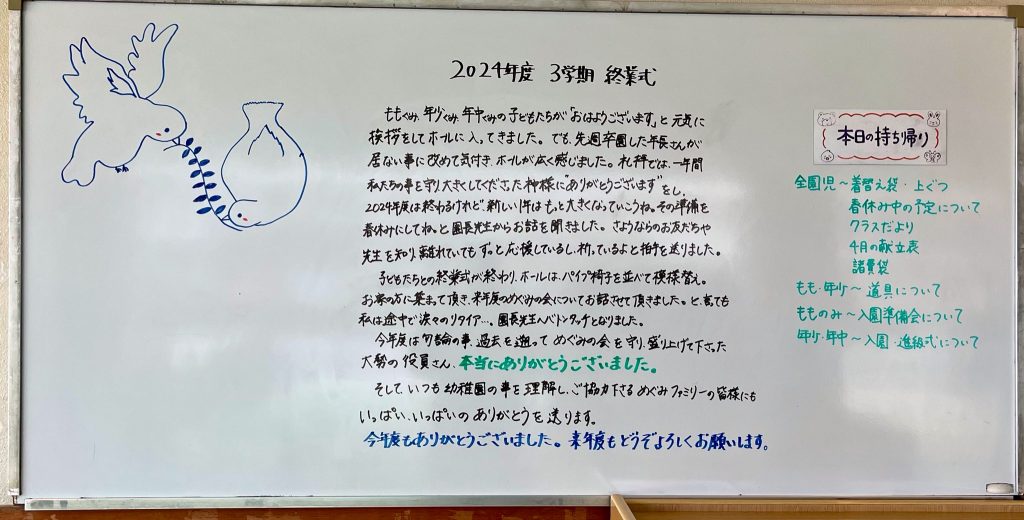 2024年度 3学期 終業式
ももぐみ、年少ぐみ、年中ぐみの子どもたちが"おはようございます"と元気に
挨拶をしてホールに入ってきました。でも、先週卒園した年長さんが
居ない事に改めて気付き、ホールが広く感じました。礼拝では、一年間
私たちの事を守り大きくしてくださった神様に"ありがとうございます"をし、
2024年度は終わるけれど、新しい1年はもっと大きくなっていこうね。その準備を
春休みにしてね。と園長先生からお話を聞きました。さようならのお友だちや
先生を知り、離れていてもずっと応援しているし、待っているよと拍手を送りました。
子どもたちとの終業式が終わり、ホールは、パイプ椅子を並べて模様替え。
お家の方に集まって頂き、来年度のめぐみの会についてお話させて頂きました。と、言っても
私は途中で涙々のリタイア…。園長先生へバトンタッチとなりました。
今年度は勿論の事、過去を遡って めぐみの会を守り、盛り上げて下さった
大勢の役員さん、本当にありがとうございました。
そして、いつも幼稚園の事を理解し、ご協力下さる めぐみファミリーの皆様にも
いっぱい、いっぱいの ありがとうを 送ります。
今年度もありがとうございました。来年度もどうぞよろしくお願いします。
本日の持ち帰り
全園児～着替え袋・上ぐつ
春休み中の予定について
クラスだより
4月の献立表
諸費袋
もも・年少～道具について
もものみ～入園準備会について
年少・年中～入園・進級式について